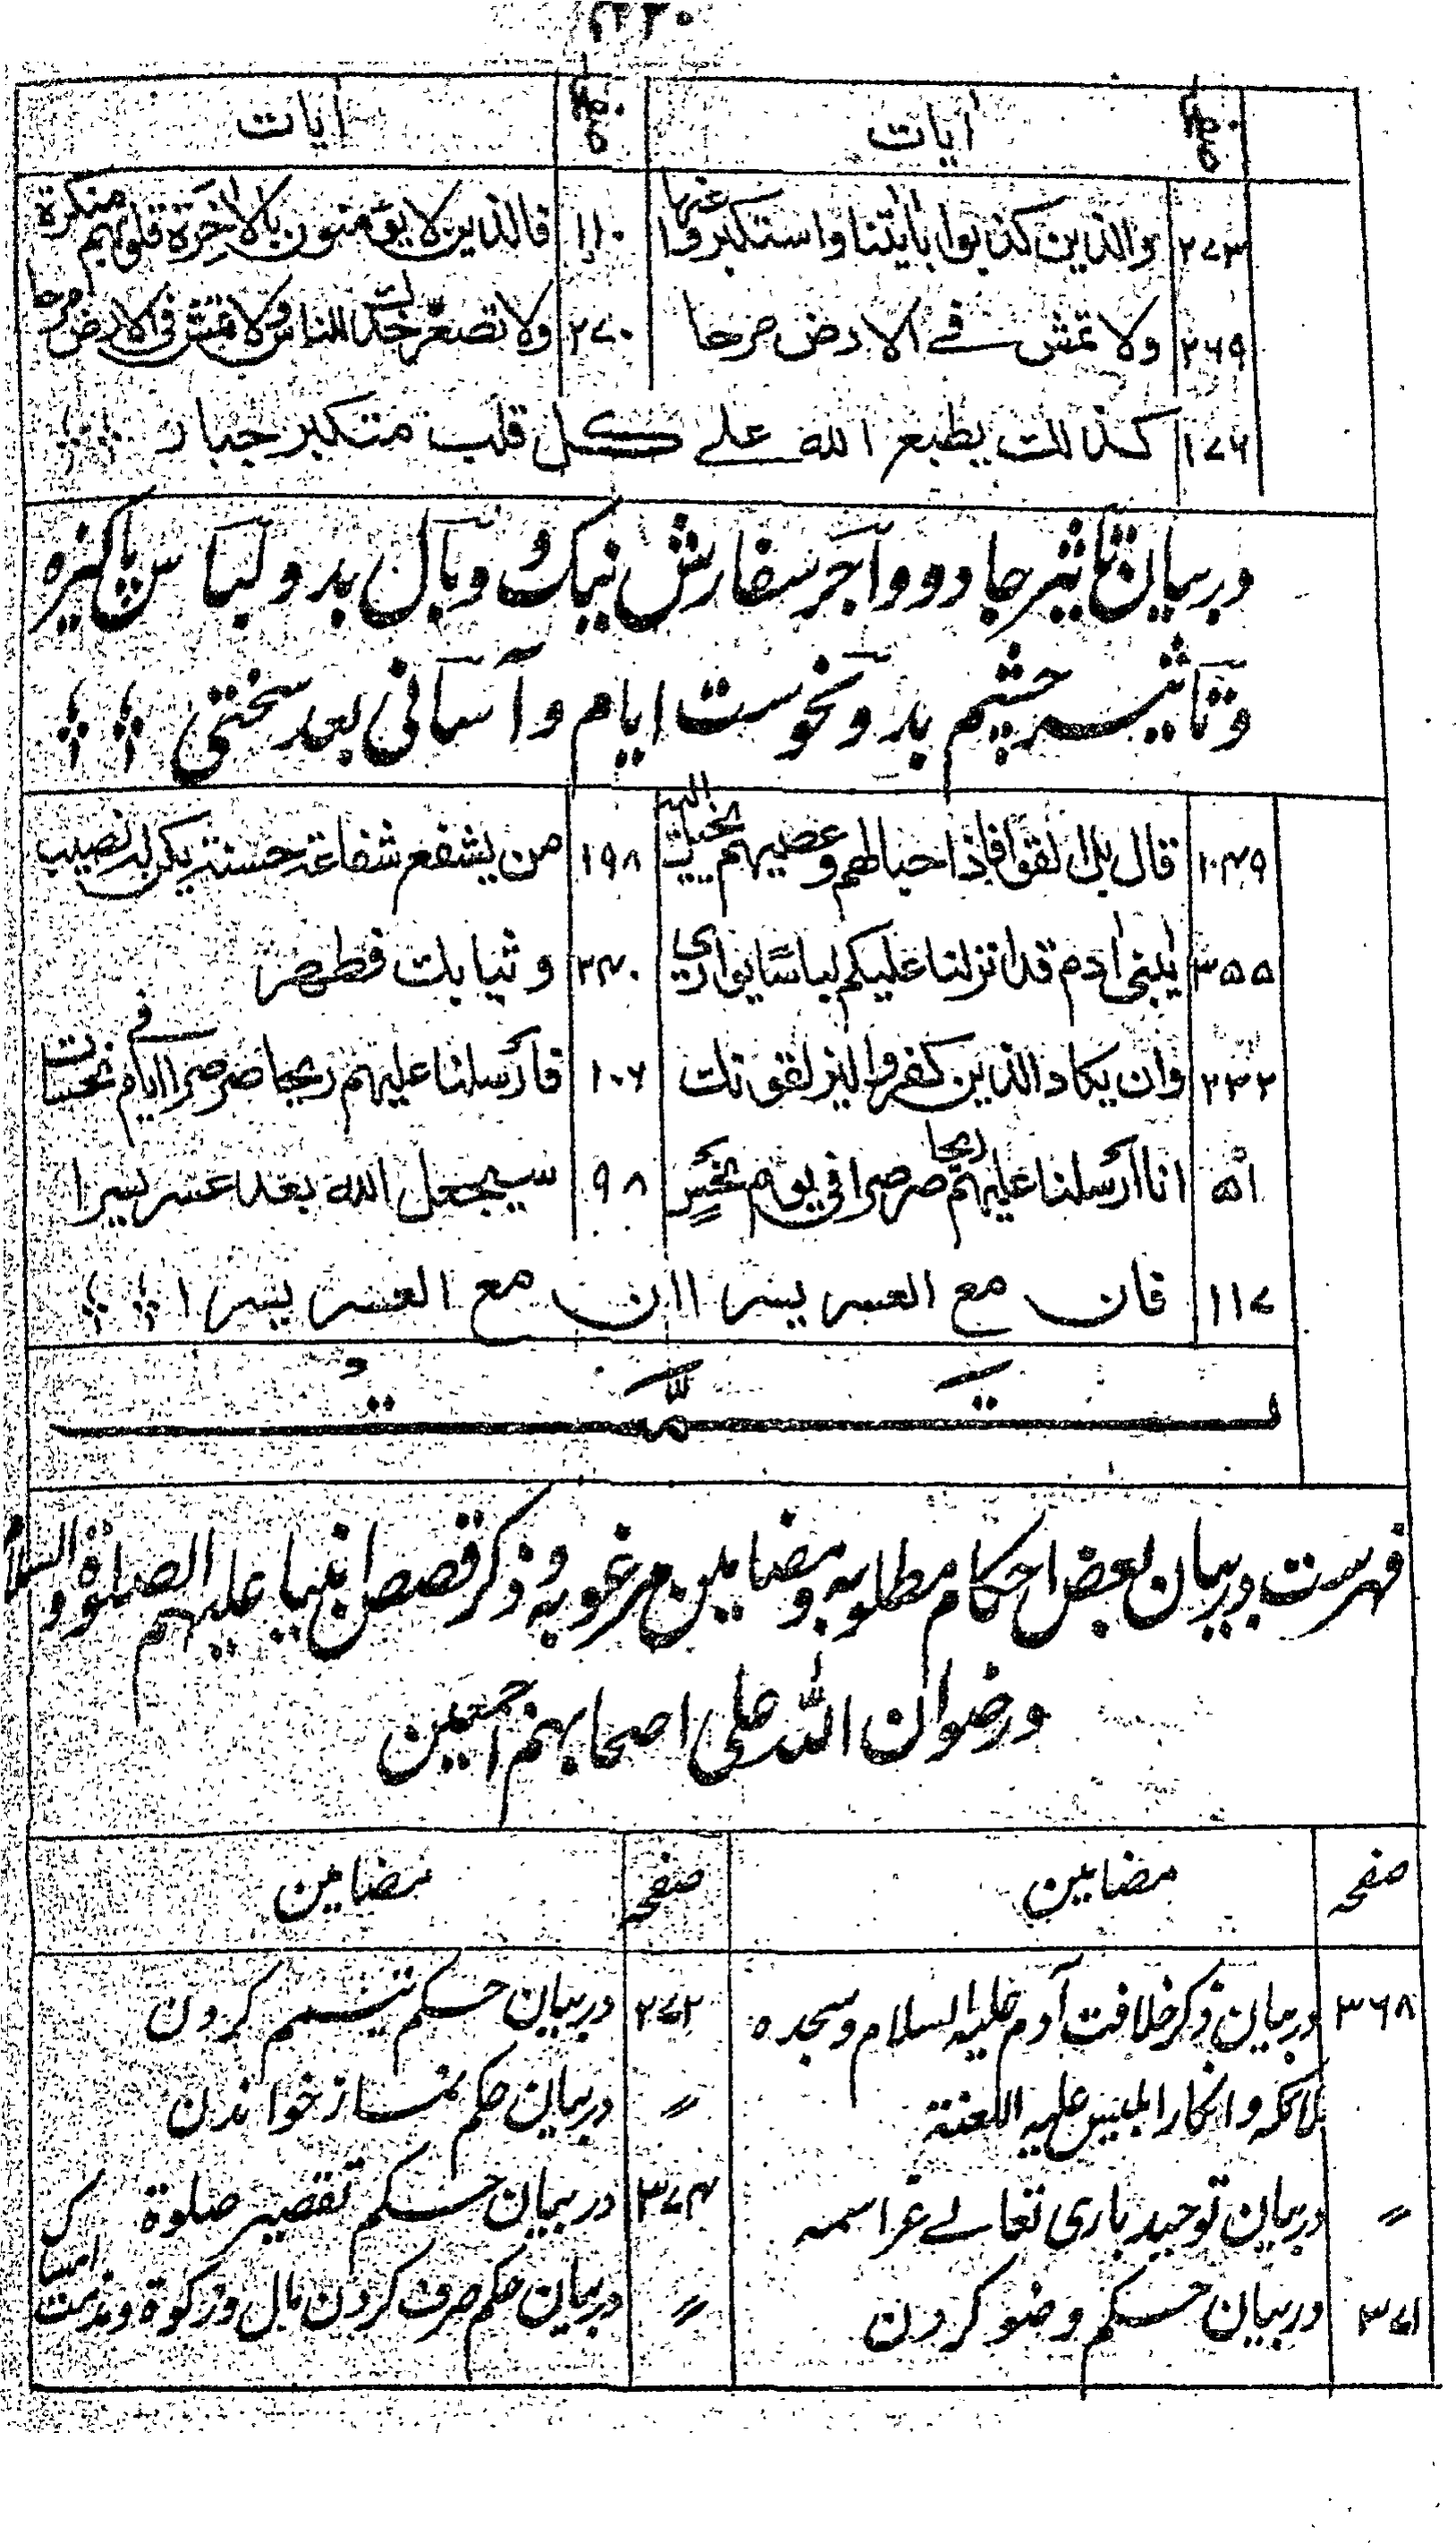 صفحہ ایات صفحہ ایات
۲۷۳ والذین کذبوا بایٰتنا واستکبروا عنہا ۱۱۰ فالذین لا یؤمنون بالاٰخرة قلوبہم منکرة
۲۶۹ ولا تمش فے الارض مرحا ۲۷۰ ولا تصعر خدک للناس ولا تمش فی الارض مرحا
۱۷۶ کذالک یطبع اللہ علے کل قلب متکبر جبار
در بیان تاثیر جادو و آجر سفارش نیک و وبال بد و لباس پاکیزہ
و تاثیر چشم بد و نحوست ایام و آسانی بعد سختی
۱۰۴۹ قال بل القوا فاذا حبالہم وعصیہم یخیل الیہ ۱۹۸ من یشفع شفاعة حسنة یکن لہ نصیب
۳۵۵ یٰبنی اٰدم قد انزلنا علیکم لباسًا یواری ۲۴۰ وثیابک فطہر
۲۳۲ وان یکاد الذین کفروا لیزلقونک ۱۰۶ فارسلنا علیہم ریحا صرصرا فے ایام نحسات
۵۱ انا ارسلنا علیہم ریحا صرصرا فی یوم نحس ۹۸ سیجعل اللہ بعد عسر یسرا
۱۱۷ فان مع العسر یسرا ان مع العسر یسرا
تمت
فہرست در بیان بعض احکام مطلوبہ و مضامین مرغوبہ و ذکر قصص انبیا علیہم الصلوة والسلام
و رضوان اللہ علی اصحابہم اجمعین
صفحہ مضامین صفحہ مضامین
۳۶۸ در بیان ذکر خلافت آدم علیہ السلام و سجدہ ۲۷۲ در بیان حکم تیمم کردن
ملائکہ و انکار ابلیس علیہ اللعنة 〃 در بیان حکم نماز خواندن
〃 در بیان توحید باری تعالے عز اسمہ ۳۷۴ در بیان حکم تقصیر صلوة
۳۷۱ در بیان حکم وضو کردن 〃 در بیان حکم صرف کردن مال و زکوة و مذمت